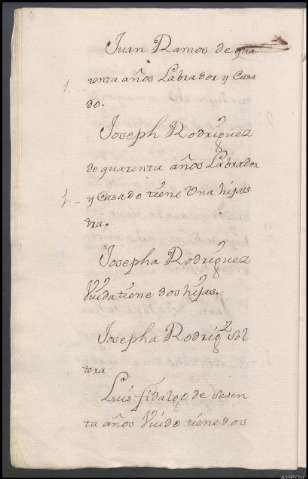 Juan Ramos de qua
1. renta años Labrador y Casa
do.
Joseph Rodriguez
de quarenta años Labrador
1. y Casado tiene Una hija
Josepha Rodriguez
Viuda tiene dos hijas.
Josepha Rodrigz sol
tera
Luis fidalgo de sesen
ta años Viudo tiene dos